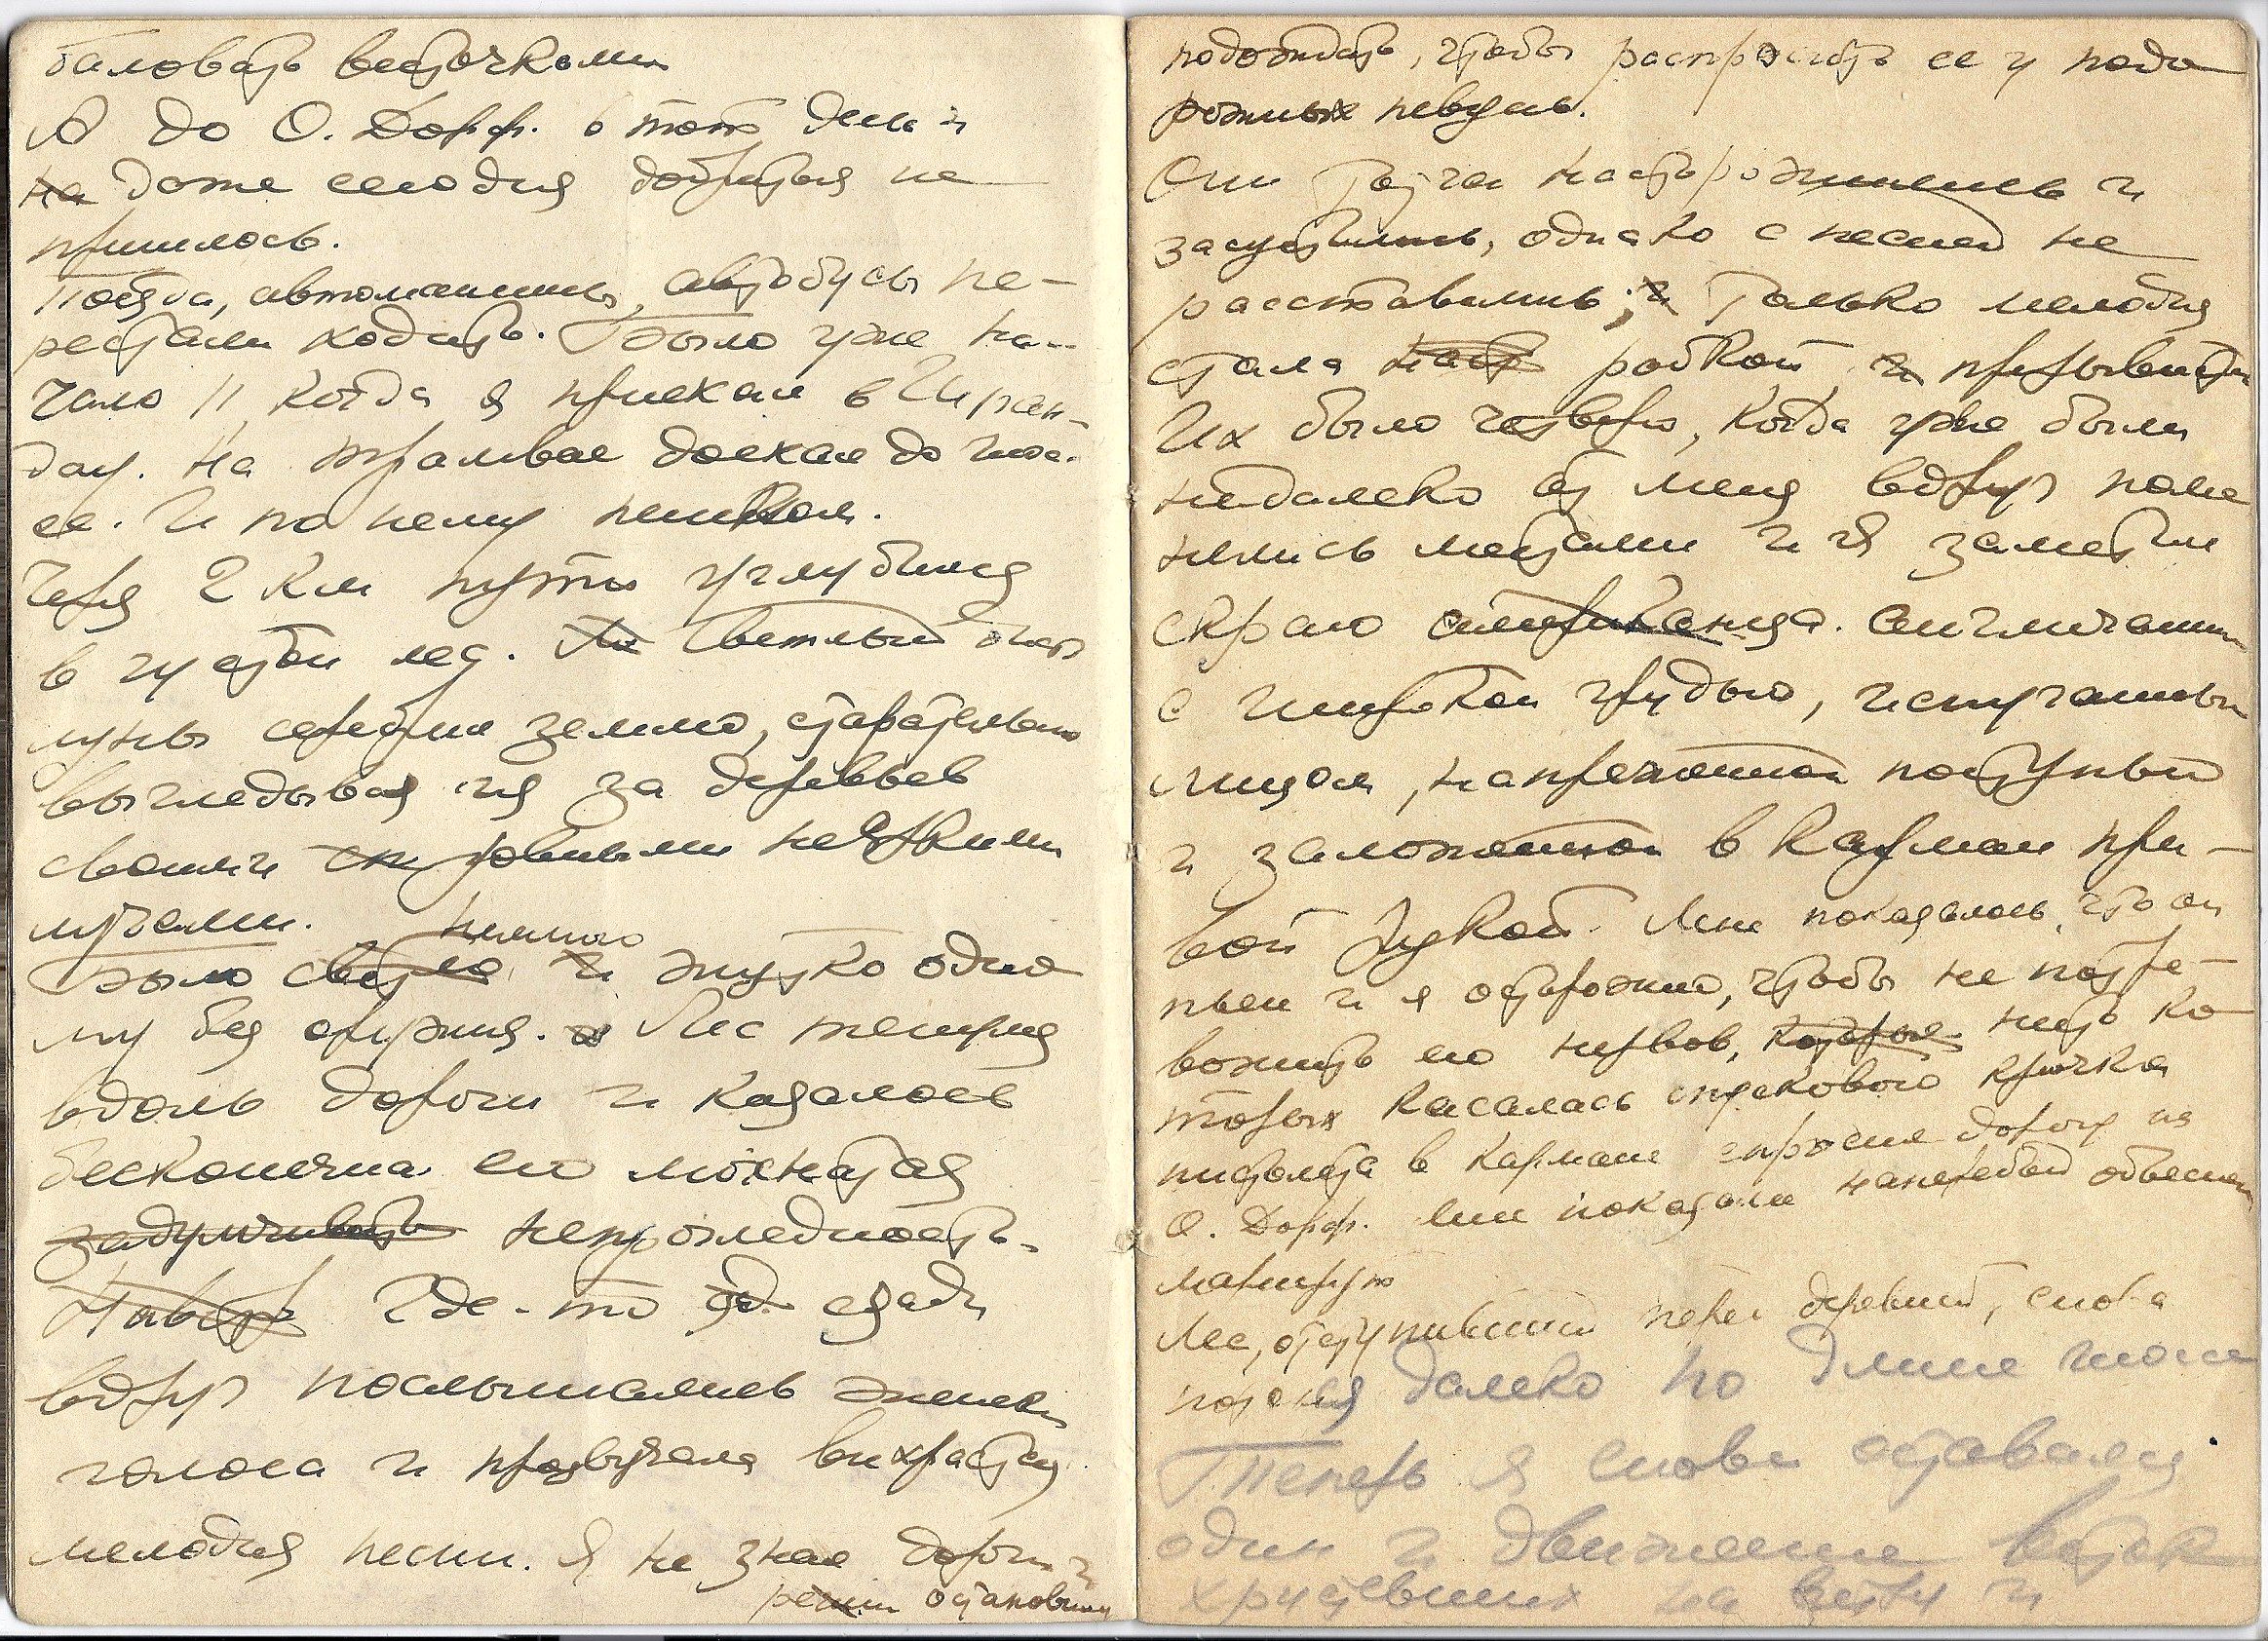 баловать весточками
А до О. Дорф. в тот день и
на даже сегодня добраться не
пришлось.
Поезда, автомашины, автобусы пе-
рестали ходить. Было уже на-
чало 11 когда я приехал в
На трамвае доехал до шос-
се. И по нему пешком.
Через 2 км пути углубился
в густой лес. Светлый блеск
луны серебрил землю, старательно
выгледывая из за деревьев
своими ровными неяркими
лучами.
Было светло немного и жутко одно
му без оружия. Лес тянулся
вдоль дороги и казалось
бесконечна его мохнатая
задумчивость непроглядность.
Где-то сзади
вдруг послышались женские
голоса и прозвучала вихрастая
мелодия песни. Я не знал дороги и
решил остановиться
подождать, чтобы распросить ее у подо
рожных певуль.
Они тотчас насторожились и
засуетились, однако с песней не
расставались; и только мелодия
стала робкой и призывной
Их было четверо, когда уже были
недалеко от меня вдруг поме
нялись местами и я заметил
скраю американца. англичанина
с широкой грудью, испуганным
лицом, напряженной поступью
и заложенной в карман пра-
вой рукой. Мне показалось, что он
пьян и я осторожно, чтобы не потре-
вожить его нервов, которые нить ко
торых касалась спускового крючка
пистолета в кармане спросил дорогу на
О. Дорф. Мне показали наперебой объяснили
маршрут
Лес, отступивший перед деревней, снова
потянулся далеко по длине шоссе
Теперь я снова оставался
один и движение веток
хрустевших на ветру и